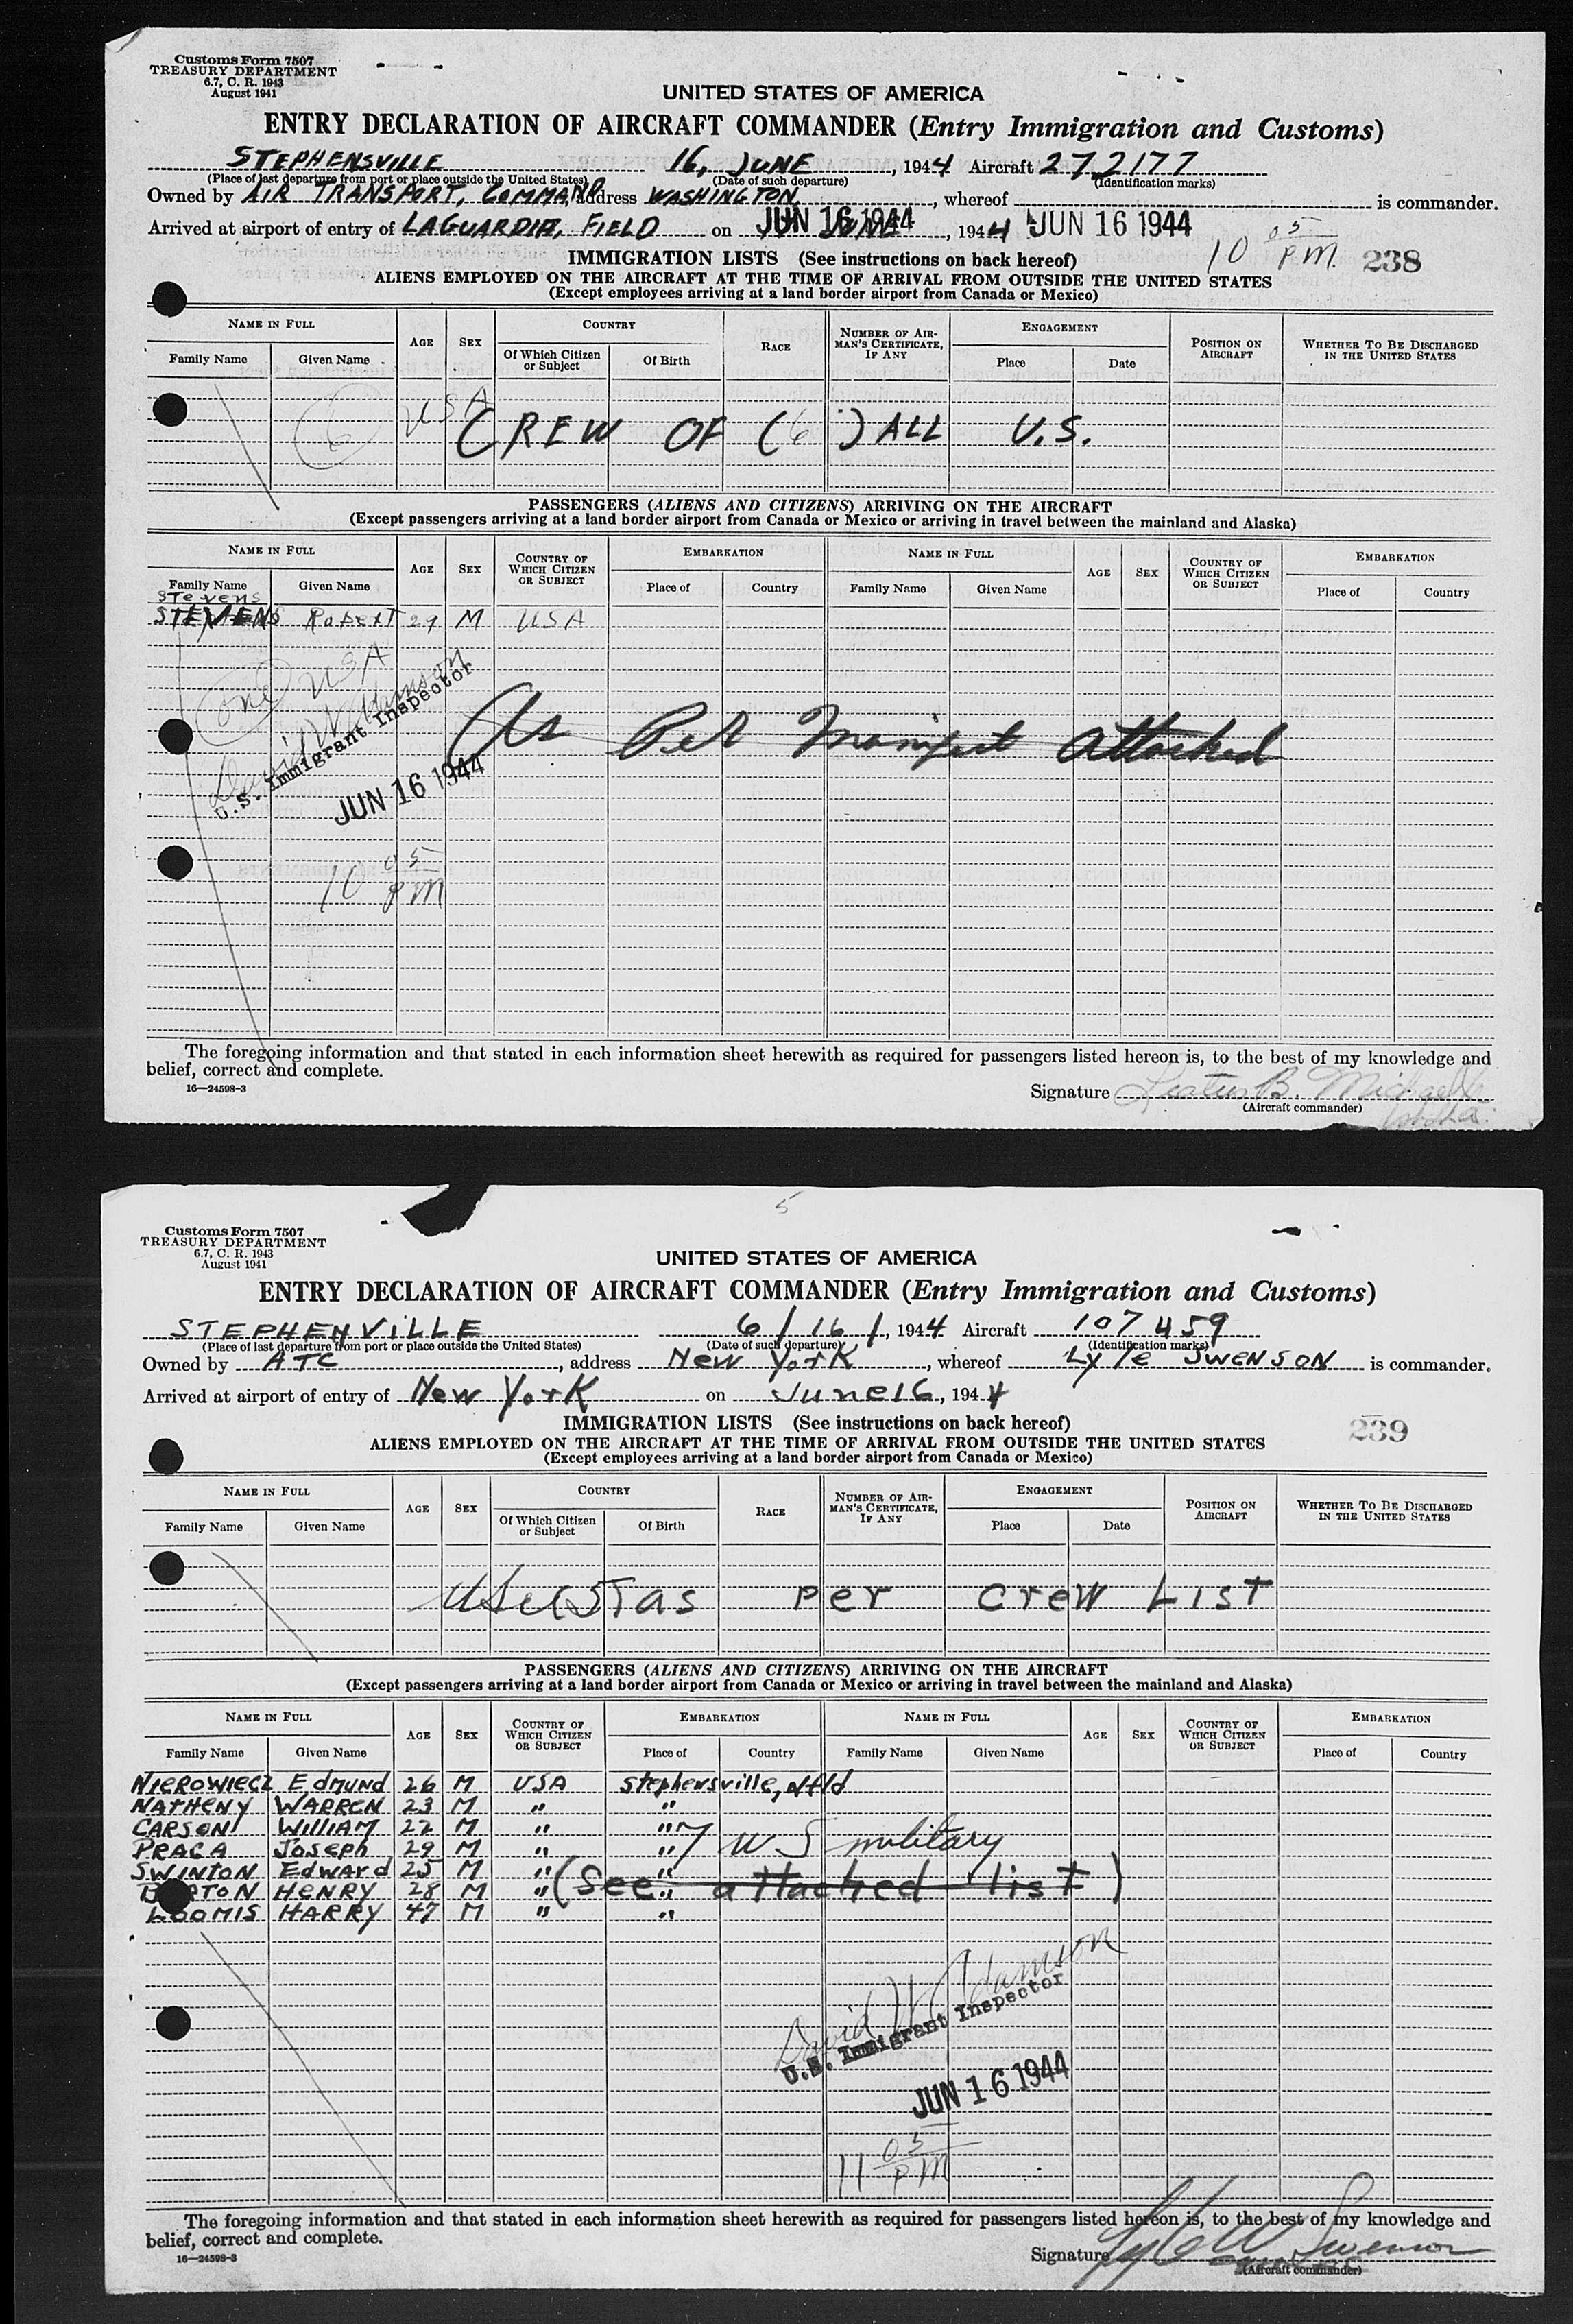 Customs Form 7507
TREASURY DEPARTMENT
6.7, C. R. 1943
August 1941
UNITED STATES OF AMERICA
ENTRY DECLARATION OF AIRCRAFT COMMANDER (Entry Immigration and Customs)
STEPHENSVILLE 16, JUNE, 1944 Aircraft 272177
(Place of last departure from port or place outside the United States) (Date of such departure) (Identification marks)
Owned by AIR TRANSPORT, COMMAND address WASHINGTON, whereof is commander.
Arrived at airport of entry of LAGUARDIA, FIELD on JUN 16 1944, 1944 JUN 16 1944
10 05 PM. 238
IMMIGRATION LISTS (See instructions on back hereof)
ALIENS EMPLOYED ON THE AIRCRAFT AT THE TIME OF ARRIVAL FROM OUTSIDE THE UNITED STATES
(Except employees arriving at a land border airport from Canada or Mexico)
NAME IN FULL AGE SEX COUNTRY RACE NUMBER OF AIRMAN'S CERTIFICATE, IF ANY ENGAGEMENT POSITION ON AIRCRAFT WHETHER TO BE DISCHARGED IN THE UNITED STATES
Family Name Given Name Of Which Citizen or Subject Of Birth Place Date
6 USA
CREW OF (6) ALL U.S.
PASSENGERS (ALIENS AND CITIZENS) ARRIVING ON THE AIRCRAFT
(Except passengers arriving at a land border airport from Canada or Mexico or arriving in travel between the mainland and Alaska)
NAME IN FULL AGE SEX COUNTRY OF WHICH CITIZEN OR SUBJECT EMBARKATION NAME IN FULL AGE SEX COUNTRY OF WHICH CITIZEN OR SUBJECT EMBARKATION
Family Name Given Name Place of Country Family Name Given Name Place of Country
Stevens
STEVENS Robert 29 M USA
one USA
David W Adamson
U.S. Immigrant Inspector
As Per Manifest Attached
JUN 16 1944
10 05 PM
The foregoing information and that stated in each information sheet herewith as required for passengers listed hereon is, to the best of my knowledge and
belief, correct and complete.
16—24598-3
Signature B.
(Aircraft commander)
5
Customs Form 7507
TREASURY DEPARTMENT
6.7, C. R. 1943
August 1941
UNITED STATES OF AMERICA
ENTRY DECLARATION OF AIRCRAFT COMMANDER (Entry Immigration and Customs)
STEPHENVILLE 6/16/, 1944 Aircraft 107459
(Place of last departure from port or place outside the United States) (Date of such departure) (Identification marks)
Owned by ATC, address New York, whereof Lyle SWENSON is commander.
Arrived at airport of entry of New York on June 16, 1944
239
IMMIGRATION LISTS (See instructions on back hereof)
ALIENS EMPLOYED ON THE AIRCRAFT AT THE TIME OF ARRIVAL FROM OUTSIDE THE UNITED STATES
(Except employees arriving at a land border airport from Canada or Mexico)
NAME IN FULL AGE SEX COUNTRY RACE NUMBER OF AIRMAN'S CERTIFICATE, IF ANY ENGAGEMENT POSITION ON AIRCRAFT WHETHER TO BE DISCHARGED IN THE UNITED STATES
Family Name Given Name Of Which Citizen or Subject Of Birth Place Date
as per crew List
PASSENGERS (ALIENS AND CITIZENS) ARRIVING ON THE AIRCRAFT
(Except passengers arriving at a land border airport from Canada or Mexico or arriving in travel between the mainland and Alaska)
NAME IN FULL AGE SEX COUNTRY OF WHICH CITIZEN OR SUBJECT EMBARKATION NAME IN FULL AGE SEX COUNTRY OF WHICH CITIZEN OR SUBJECT EMBARKATION
Family Name Given Name Place of Country Family Name Given Name Place of Country
NIEROWIECZ Edmund 26 M USA Stephensville, Nfld
NATHENY WARREN 23 M " "
CARSON WILLIAM 22 M " "
PRACA Joseph 29 M " " 7 US military
SWINTON Edward 25 M " "
HENRY 28 M " " (See attached list)
LOOMIS HARRY 47 M " "
David W Adamson
U.S. Immigrant Inspector
JUN 16 1944
11 05 PM
The foregoing information and that stated in each information sheet herewith as required for passengers listed hereon is, to the best of my knowledge and
belief, correct and complete.
16—24598-3
Signature Lyle W Swenson
(Aircraft commander)